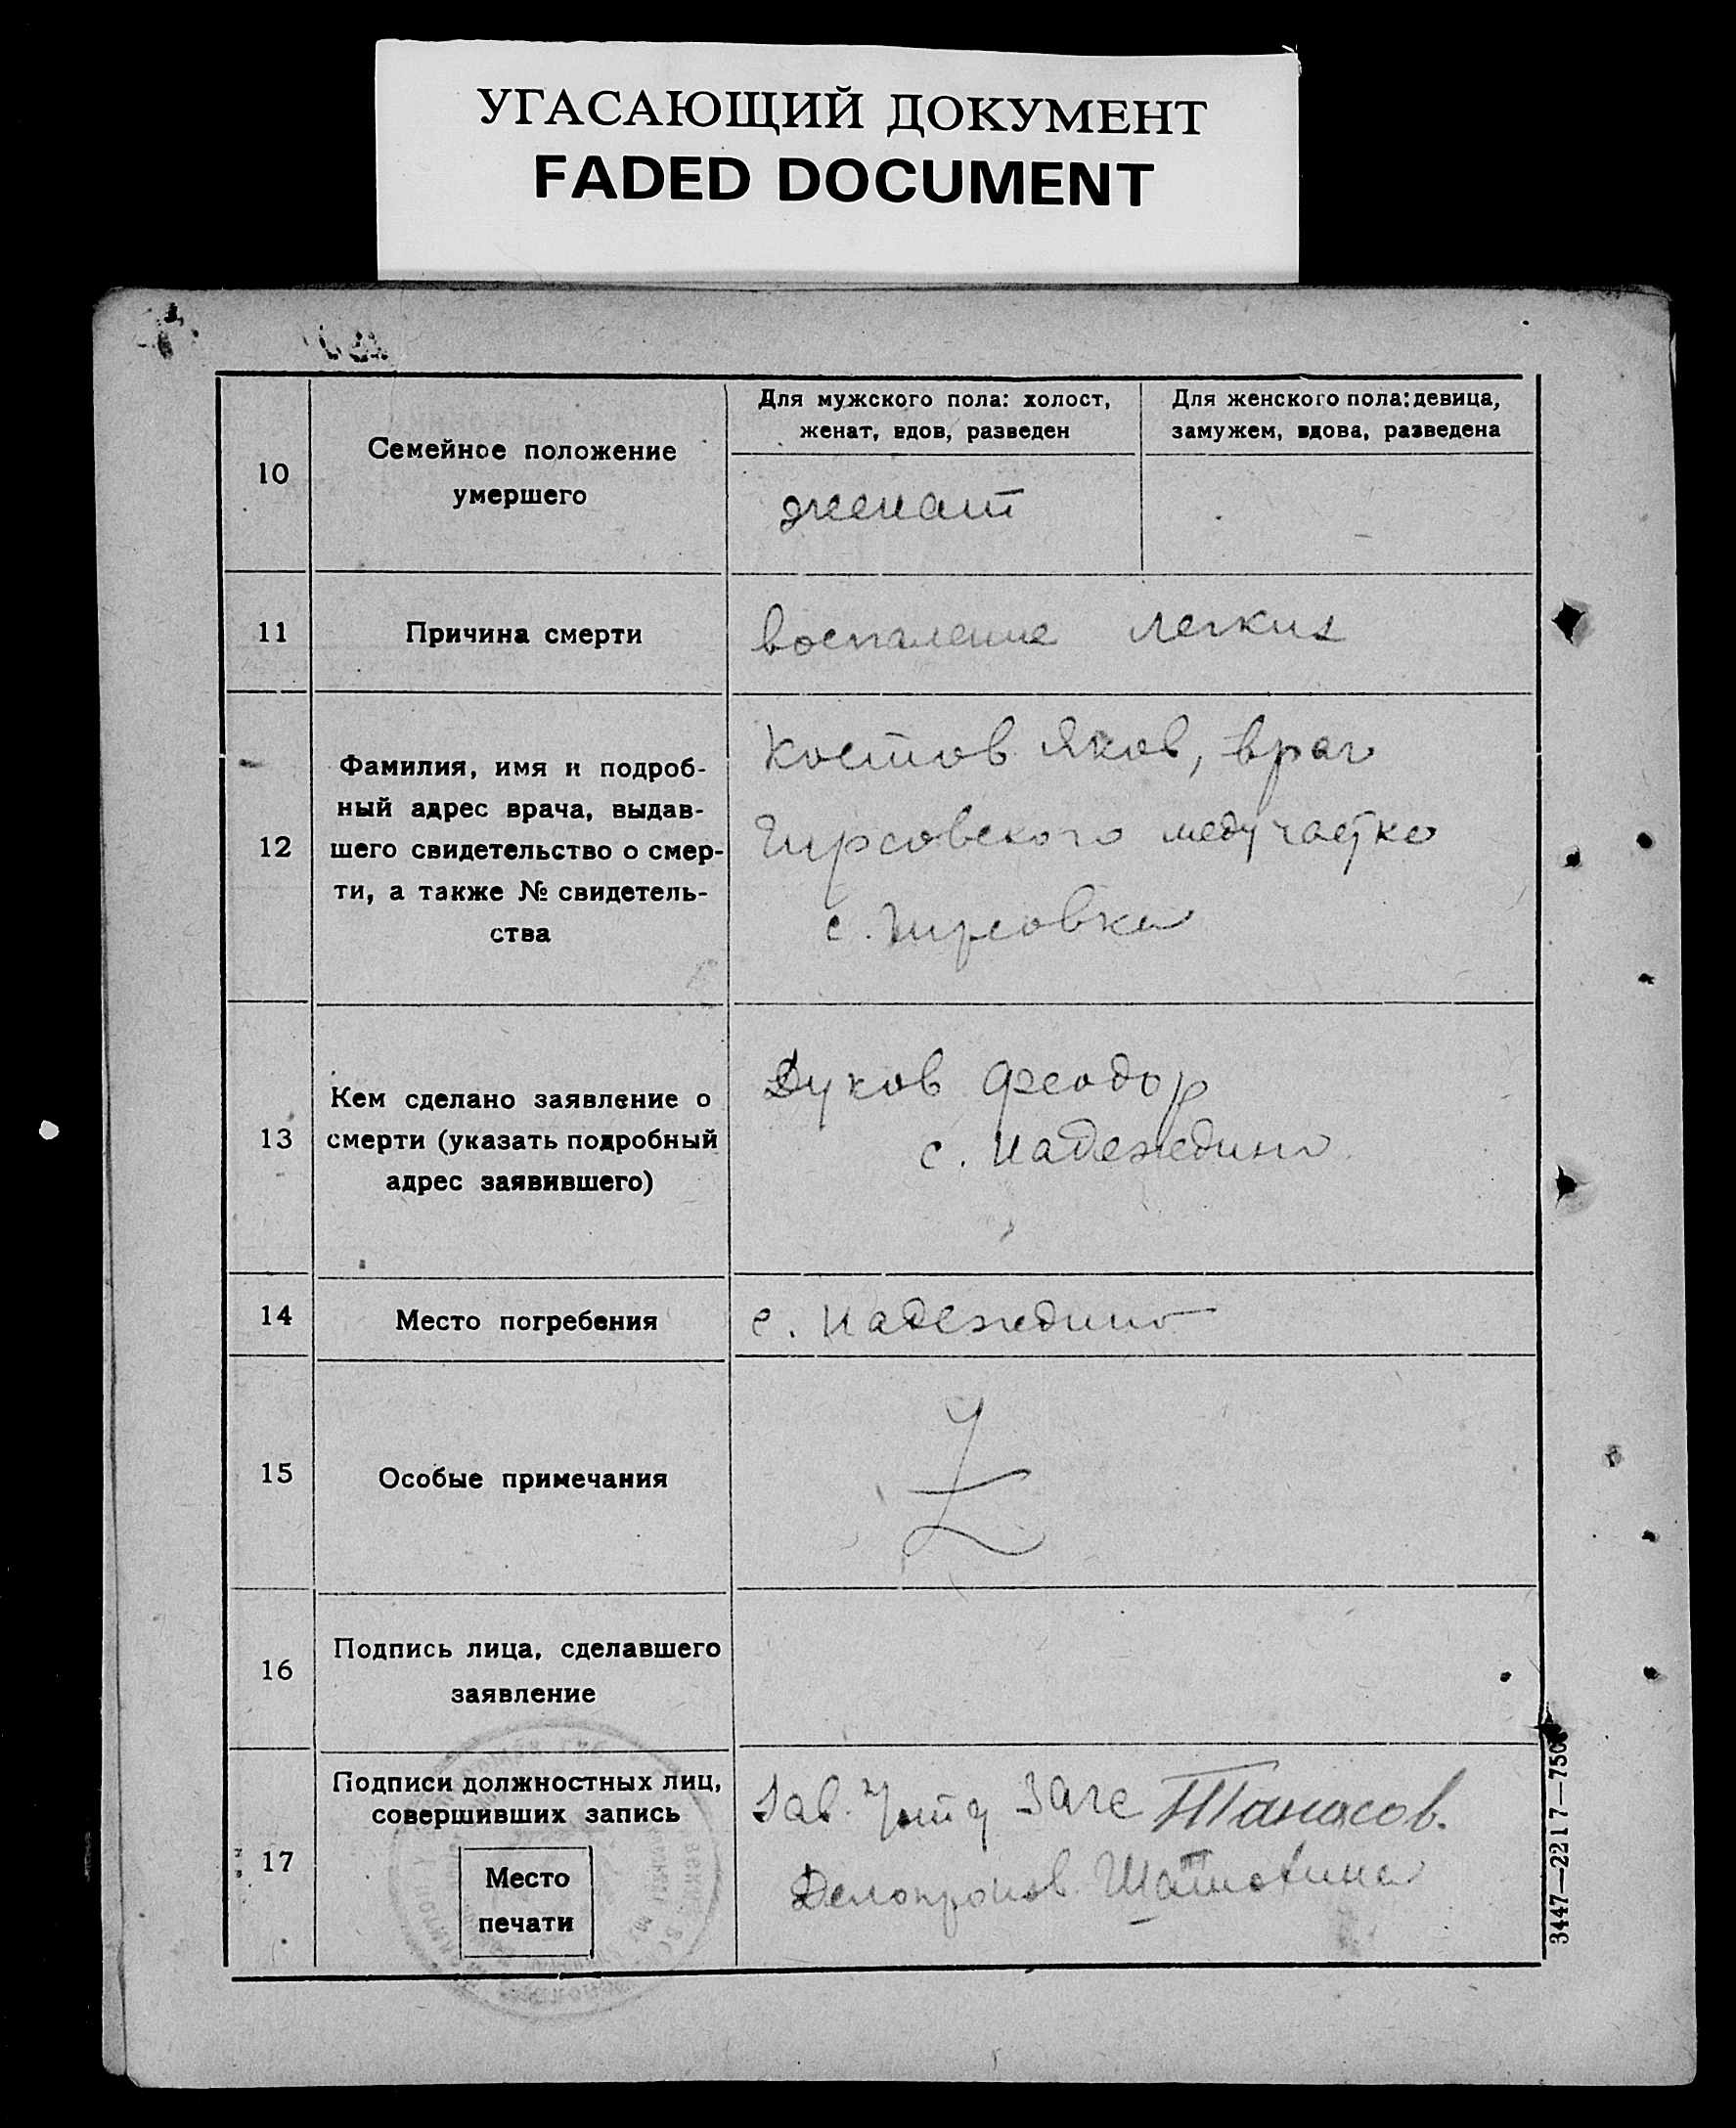 УГАСАЮЩИЙ ДОКУМЕНТ
FADED DOCUMENT
10
Семейное положение
умершего
Для мужского пола: холост,
женат, вдов, разведен
Для женского пола: девица,
замужем, вдова, разведена
женат
11
Причина смерти
воспаление легких
12
Фамилия, имя и подроб-
ный адрес врача, выдав-
шего свидетельство о смер-
ти, а также № свидетель-
ства
Костов Яков, врач
Гирсовского медучастка
с. Гирсовка
13
Кем сделано заявление о
смерти (указать подробный
адрес заявившего)
Дуков Феодор
с. Надеждино
14
Место погребения
с. Надеждино
15
Особые примечания
Z
16
Подпись лица, сделавшего
заявление
17
Подписи должностных лиц,
совершивших запись
Место
печати
Зав. Загс Танасов.
Делопроизв.
3447—2217—750